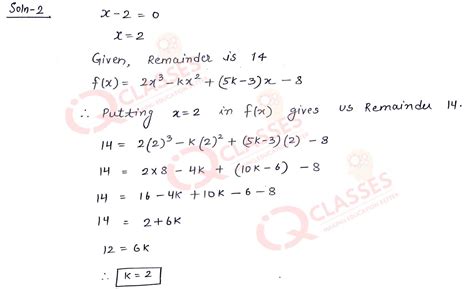 Soln-2
x-2 = 0
x=2
Given, Remainder is 14
f(x) = 2x³-kx²+(5k-3)x-8
∴ Putting x=2 in f(x) gives us Remainder 14.
14 = 2(2)³-k(2)²+(5k-3)(2)-8
14 = 2×8-4k+(10k-6)-8
14 = 16-4k+10k-6-8
14 = 2+6k
12 = 6k
∴ k=2
IQ CLASSES
IQ CLASSES